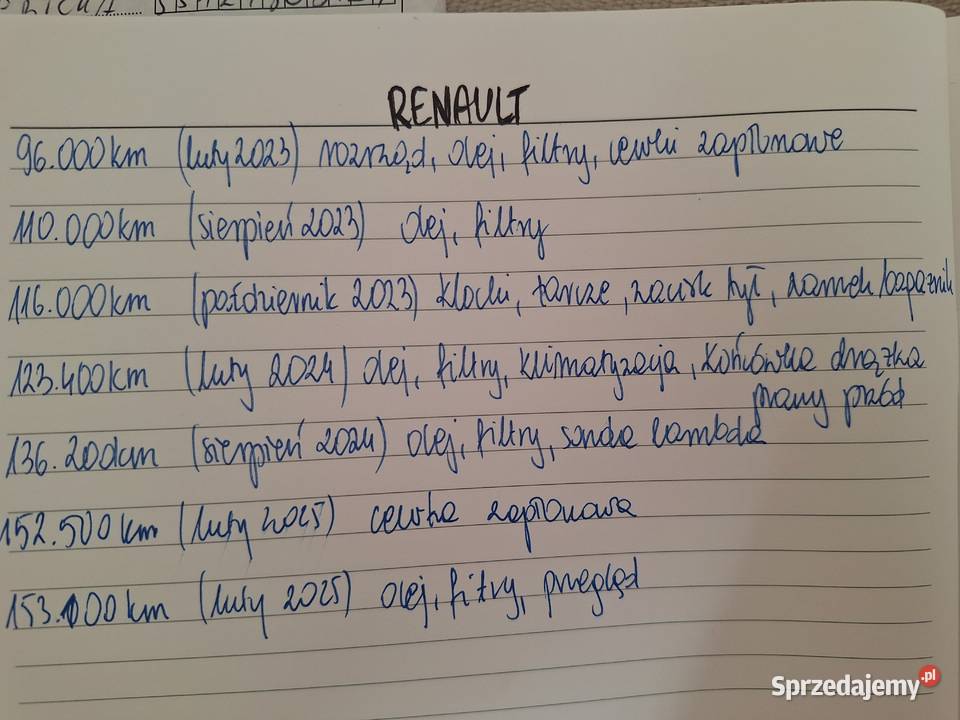 RENAULT
96.000km (luty 2023) rozrząd, olej, filtry, cewki zapłonowe
110.000km (sierpień 2023) olej, filtry
116.000km (październik 2023) klocki, tarcze, zacisk tył, zamek/bagażnik
123.400km (luty 2024) olej, filtry, klimatyzacja, końcówka drążka
prawy przód
136.200km (sierpień 2024) olej, filtry, sonda lambda
152.500km (luty 2025) cewka zapłonowa
153.100km (luty 2025) olej, fitry, przegląd
Sprzedajemy.pl